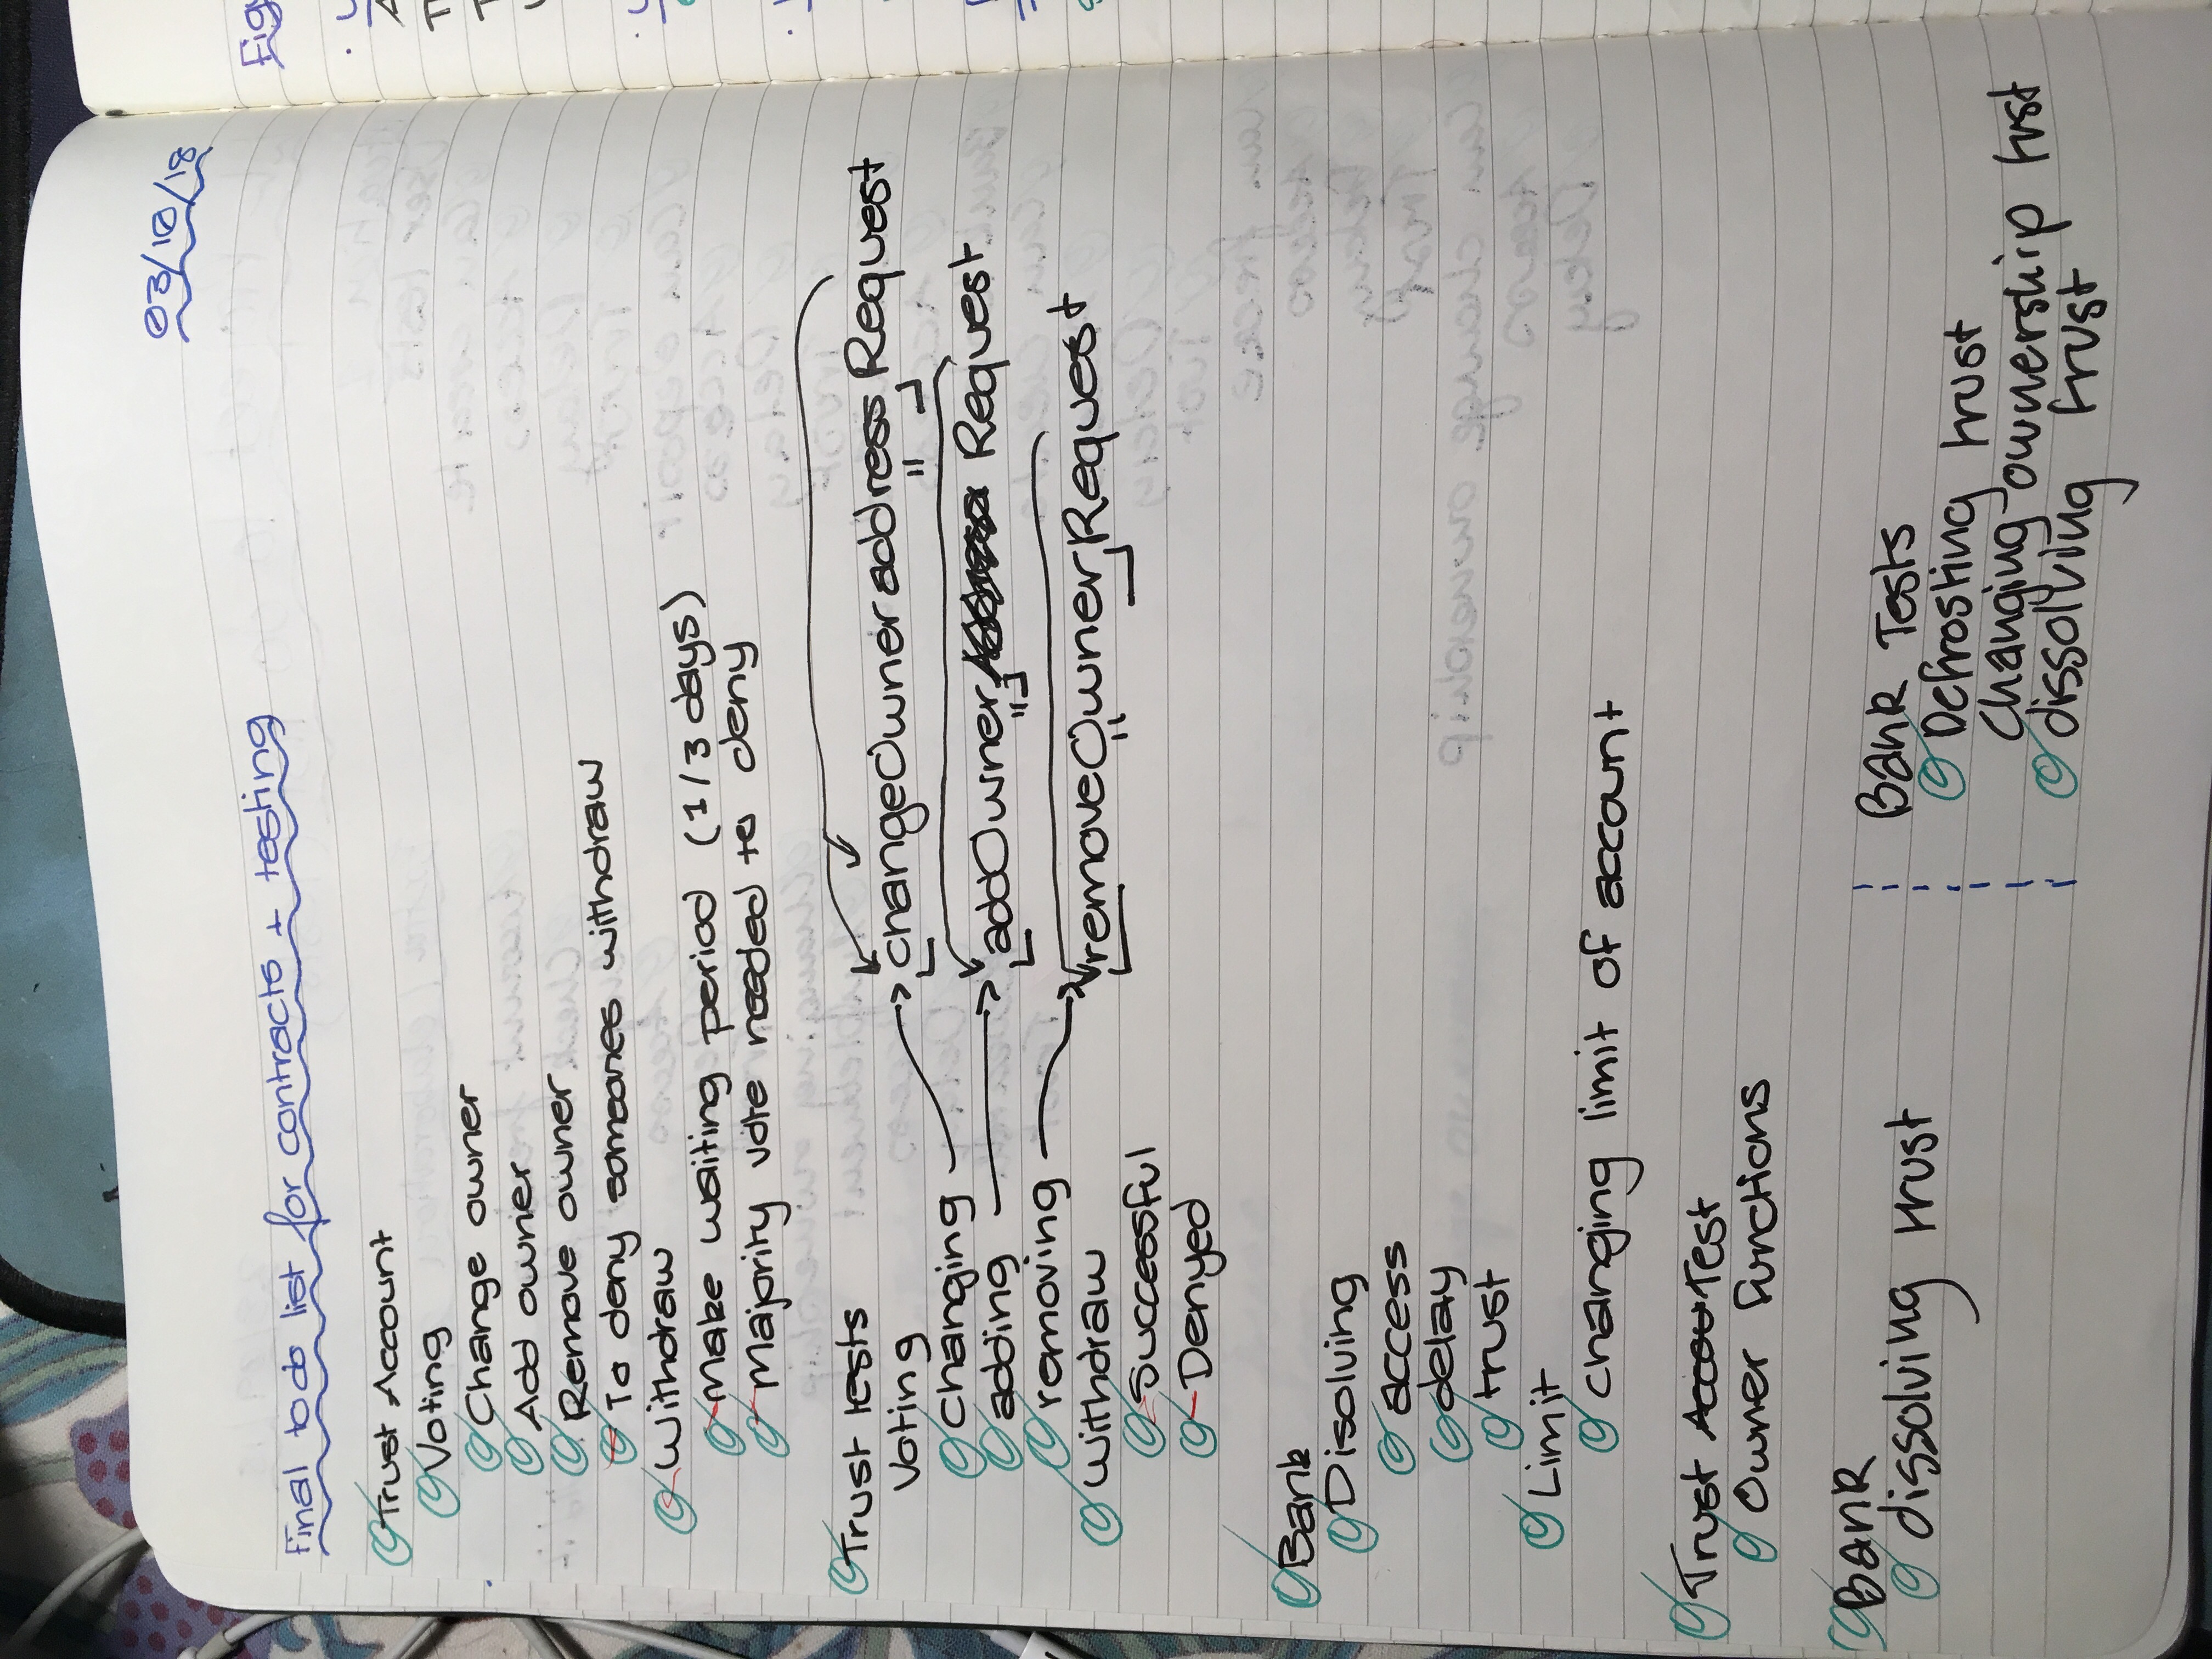 03/10/18
Final to do list for contracts + testing
Trust Account
Voting
Change owner
Add owner
Remove owner
To deny someones withdraw
Withdraw
Make waiting period (1/3 days)
Majority vote needed to deny
Trust tests
Voting
Changing → changeOwner address Request
adding → addOwner Request
removing → removeOwner Request
Withdraw
Successful
Denyed
Bank
Disolving
access
delay
trust
Limit
changing limit of account
Trust Accou Test
Owner functions
Bank
dissolving trust
Bank Tests
Defrosting trust
Changing ownership trst
dissolving trust